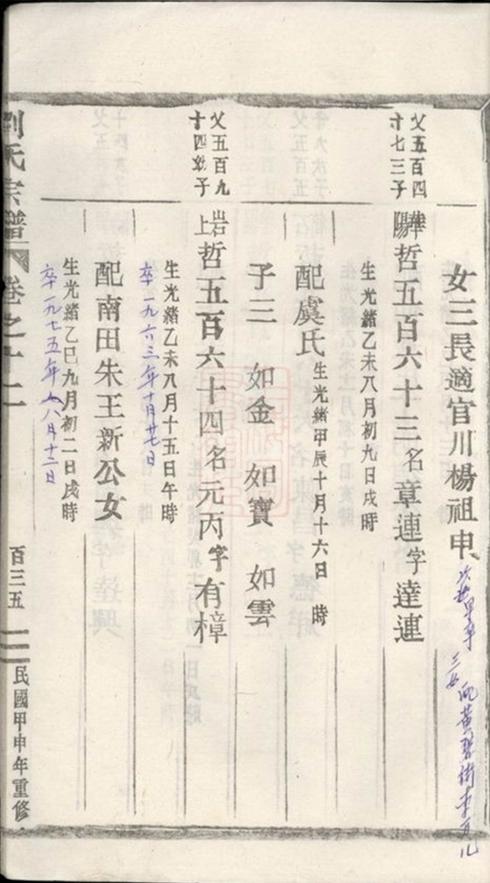 女三長適官川楊祖申
父五百四十七三子
華陽哲五百六十三名章連字達連
生光緒乙未八月初九日戌時
配虞氏生光緒甲辰十月十六日 時
子三 如金 如寶 如雲
父五百九十四幼子
岩上哲五百六十四名元丙字有樟
生光緒乙未八月十五日午時
卒一九六三年十月廿七日
配南田朱王新公女
生光緒乙巳九月初二日戌時
卒一九七五年八月十二日
劉氏宗譜 卷之十二 百三五 民國甲申年重修